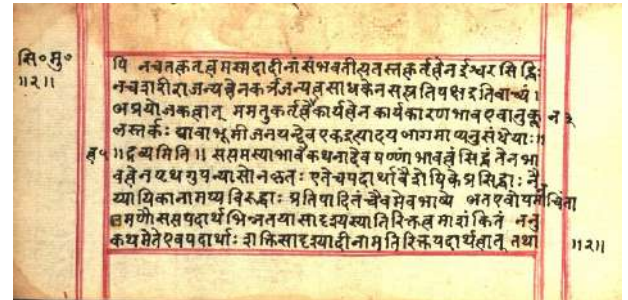 सि॰मु॰
॥२॥
पि नचतत्कर्तृत्वमस्मदादीनां संभवतीत्यतस्तत्कर्तृत्वेन ईश्वरसिद्धिः
नचशरीराजन्यत्वेनकर्त्रजन्यत्वसाधकेनसत्प्रतिपक्षइतिवाच्यं।
अप्रयोजकत्वात् ममतुकर्तृत्वेनकार्यत्वेनकार्यकारणभावएवानुकू
लस्तर्कः द्यावाभूमीजनयन्देवएकइत्यादयआगमाप्यनुसंधेयाः॥
॥द्रव्यमिति॥ सप्तमस्याभावत्वकथनादेवषण्णांभावत्वंसिद्धंतेनभा
वत्वेनपृथगुपन्यासोनकृतः एतेचपदार्थावैशेषिकेप्रसिद्धाः नै
य्यायिकानामप्यविरुद्धाः प्रतिपादितंचैवमेवभाष्ये अतएवोपमानचिंता
मणौसप्तपदार्थभिन्नतयासादृश्यस्यातिरिक्तत्वमाशंकितं ननु
कथमेतेएवपदार्थाः शक्तिसादृश्यादीनामतिरिक्तपदार्थत्वात् तथा
॥२॥